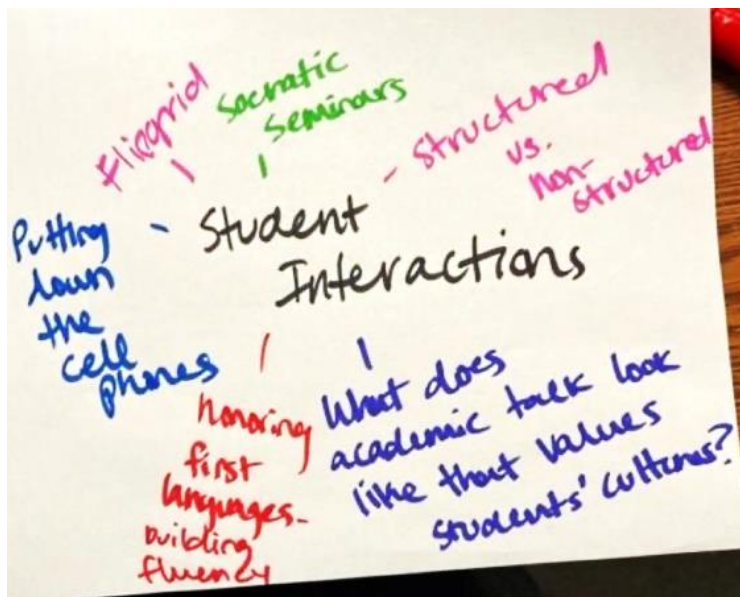 Flipgrid
Socratic
Seminars
Structured
vs.
non-
structured
Student
Interactions
Putting
down
the
cell
phones
honoring
first
languages-
building
fluency
What does
academic talk look
like that values
students' cultures?